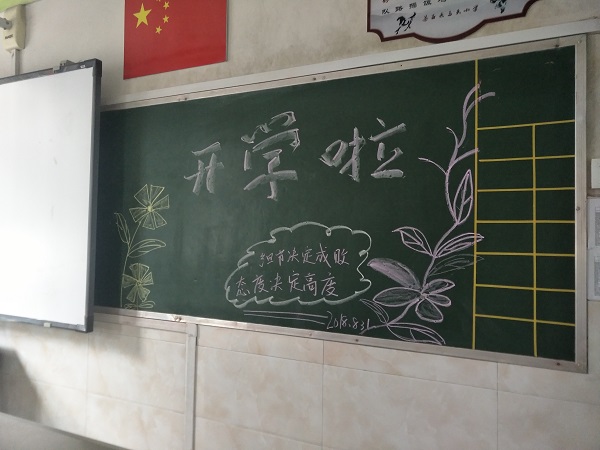 开学啦
细节决定成败
态度决定高度
2018.8.31